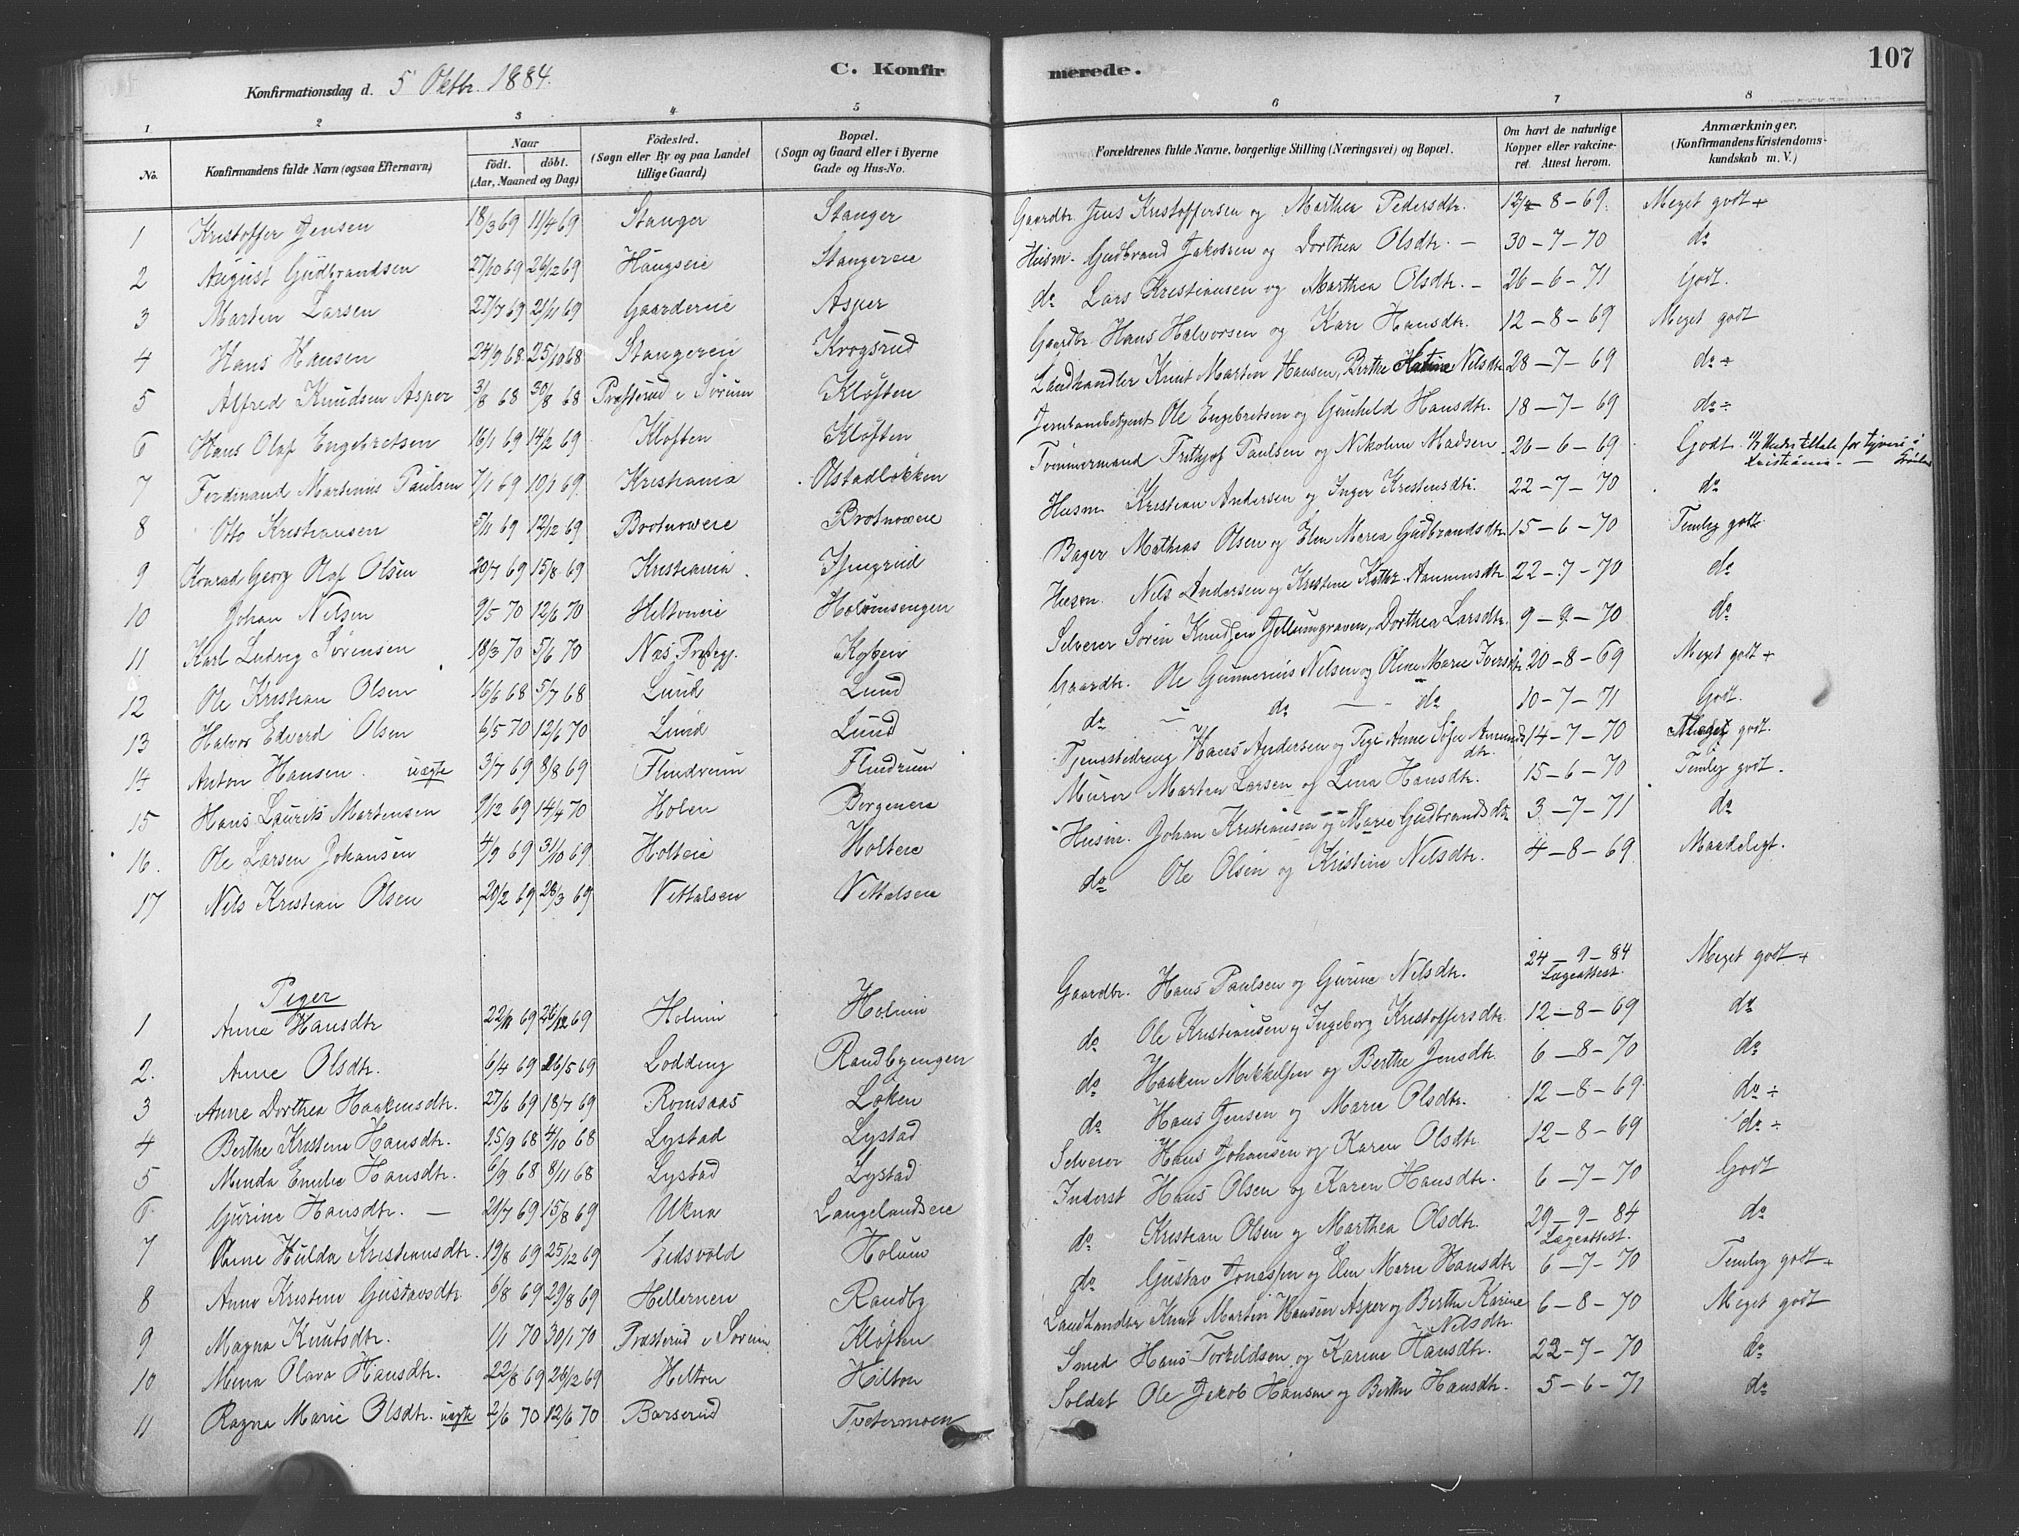 107
Konfirmationsdag d. 5 Oktbr. 1884.
C. Konfirmerede.
1 2 3 4 5 6 7 8
No. Konfirmandens fulde Navn (ogsaa Efternavn) Naar født. døbt. (Aar, Maaned og Dag) Fødested. (Sogn eller By og paa Landet tillige Gaard) Bopæl. (Sogn og Gaard eller i Byerne Gade og Hus-No. Forældrenes fulde Navne, borgerlige Stilling (Næringsvei) og Bopæl. Om havt de naturlige Kopper eller vakcineret. Attest herom. Anmærkninger. (Konfirmandens Kristendomskundskab m. V.)
1 Kristoffer Jensen 18/3 69 11/4 69 Stanger Stanger Gaardbr. Jens Kristoffersen og Marthea Pedersdtr. 12 - 8 - 69. Meget godt +
2 August Gudbrandsen 27/10 69 26/12 69 Haugseie Stangereie Husm. Gudbrand Jakobsen og Dorthea Olsdtr. - 30 - 7 - 70 do
3 Marten Larsen 27/7 69 21/11 69 Gaardereie Asper do Lars Kristiansen og Marthea Olsdtr. - 26 - 6 - 71 Godt.
4 Hans Hansen 24/9 68 25/10 68 Stangereie Krogsrud Gaardbr Hans Halvorsen og Kari Hansdtr. 12 - 8 - 69 Meget godt
5 Alfred Knudsen Asper 3/8 68 30/8 68 Præsterud i Sørum Kløften Landhandler Knut Martin Hansen, Berthe Nilsdtr 28 - 7 - 69 do ÷
6 Hans Olaf Engebretsen 16/1 69 14/2 69 Kløften Kløften Jernbanebetjent Ole Engebretsen og Gunhild Hansdtr. 18 - 7 - 69 do ÷
7 Ferdinand Martinius Paulsen 7/1 69 10/1 69. Kristiania Olstadløkken Tømmermand Frithjof Paulsen og Nikoline Madsen 26 - 6 - 69 Godt. Under tiltale for tyveri i Kristiania.
8 Otto Kristiansen 5/11 69 12/12 69 Brotnoweie Brotnoweie Husm Kristian Andersen og Inger Kristensdtr. 22 - 7 - 70 do
9 Konrad Georg Olaf Olsen 20/7 69 15/8 69 Kristiania Bager Mathias Olsen og Elen Maria Gudbrandsdtr. 15 - 6 - 70 Temlig godt
10 Johan Nilsen 9/5 70 12/6 70 Heltoneie Holumsengen Husm. Nils Andersen og Kristine Kathr. 22 - 7 - 70 do
11 Karl Ludvig Sørensen 18/3 70 5/6 70 Næs Præstegj. Selveier Søren Knudsen Jellumgraven, Dorthea Larsdtr. 9 - 9 - 70 do
12 Ole Kristian Olsen 16/6 68 5/7 68 Lund Lund Gaardbr. Ole Gunnerius Nilsen og Oline Marie Iversdtr 20 - 8 - 69 Meget godt +
13 Halvor Edvard Olsen 6/5 70 12/6 70 Lund Lund do - do - do 10 - 7 - 71 Godt.
14 Anton Hansen. uægte 3/7 69 8/8 69 Flindrum Flindrum Tjenestedreng Hans Andersen og Pige Anne Sofie Amundsdtr. 14 - 7 - 70 Meget godt.
15 Hans Laurits Martinsen 9/12 69 14/4 70 Holen Borgeneie Murer Martin Larsen og Lina Hansdtr. 15 - 6 - 70 Temlig godt.
16. Ole Larsen Johansen 4/9 69 31/10 69 Holteie Holteie Husm. Johan Kristiansen og Marie Gudbrandsdtr 3 - 7 - 71 do
17 Nils Kristian Olsen 20/2 69 28/3 69 Nettalsen Nettalseie do Ole Olsen og Kristine Nilsdtr. 4 - 8 - 69. Maadeligt.
Piger
1 Anne Hansdtr 22/11 69 26/12 69 Holum Holum Gaardbr. Hans Paulsen og Gurine Nilsdtr. 24 - 9 - 84 Lægeattest. Meget godt +
2. Anne Olsdtr. 6/4 69 16/5 69 Lodding Randbyengen do Ole Kristiansen og Ingeborg Kristoffersdtr. 12 - 8 - 69 do
3 Anne Dorthea Haakensdtr. 27/6 69 18/7 69 Romsaas Løken do Haaken Mikkelsen og Berthe Jensdtr. 6 - 8 - 70 do
4 Berthe Kristine Hansdtr. 15/9 68 4/10 68 Lystad Lystad do Hans Jensen og Marie Olsdtr. 12 - 8 - 69. do ÷
5 Minda Emilie Hansdtr. 6/9 68 8/11 68 Lystad Lystad Selveier Hans Johansen og Karen Olsdtr. 12 - 8 - 69 do ÷
6 Gurine Hansdtr. - 24/7 69 15/8 69 Ukna Langelandseie Inderst Hans Olsen og Karen Hansdtr. 6 - 7 - 70 Godt
7 Anne Hulda Kristiansdtr. 19/8 69 25/12 69 Eidsvold Holum do Kristian Olsen og Marthea Olsdtr. 29 - 9 - 84 Lægeattest. do
8 Anne Kristine Gustavsdtr. 6/8 69 29/8 69 Hellernen Randby do Gustav Jonassen og Elen Marie Hansdtr 6 - 7 - 70 Temlig godt +
9 Magna Knutsdtr. 1/1 70 30/1 70 Præsterud i Sørum Kløften Landhandler Knut Martin Hansen Asper og Berthe Karine Nilsdtr. 6 - 8 - 70 Meget godt
10 Mina Olava Hansdtr. 22/8 69 26/12 69 Helton Hilton Smed Hans Torkildsen og Karine Hansdtr. 22 - 7 - 70 do
11 Ragna Marie Olsdtr. uægte 2/6 70 12/6 70 Barserud Tvetermoen Soldat Ole Jakob Hansen og Berthe Hansdtr. 5 - 6 - 71 do